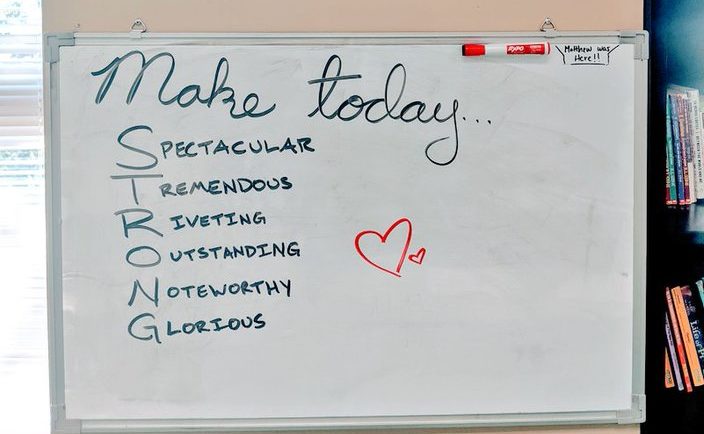 Make today...
SPECTACULAR
TREMENDOUS
RIVETING
OUTSTANDING
NOTEWORTHY
GLORIOUS
EXPO
Matthew was
Here!!
Life of Pi